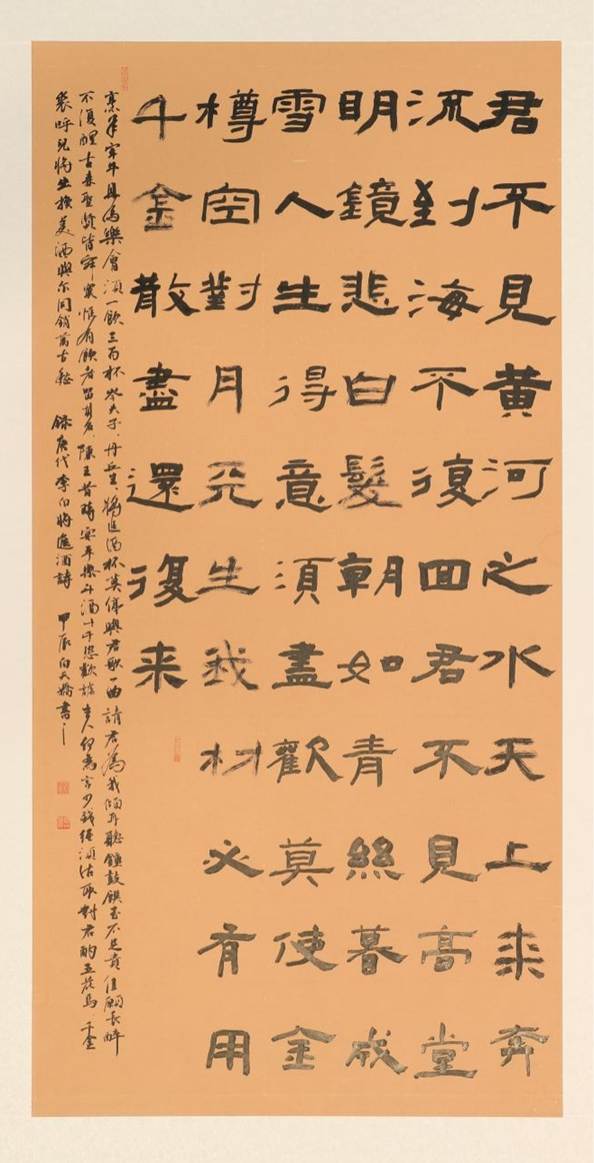 君不見黃河之水天上来奔
流到海不復回君不見高堂
明鏡悲白髮朝如青絲暮成
雪人生得意須盡歡莫使金
樽空對月天生我材必有用
千金散盡還復来
烹羊宰牛且為樂會須一飲三百杯岑夫子丹丘生將進酒杯莫停與君歌一曲請君為我傾耳聽鐘鼓饌玉不足貴但願長醉
不復醒古來聖賢皆寂寞惟有飲者留其名陳王昔時宴平樂斗酒十千恣歡謔主人何為言少錢徑須沽取對君酌五花馬千金
裘呼兒將出換美酒與尔同銷萬古愁 錄唐代李白將進酒詩 甲辰白天嬌書之